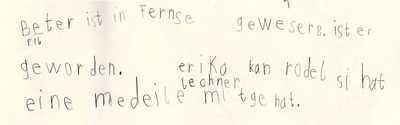 Beter ist in Fernse gewesers. ist er
Fil6
geworden. eriKa kan rodel si hat
lechner
eine medeile mi tge hat.